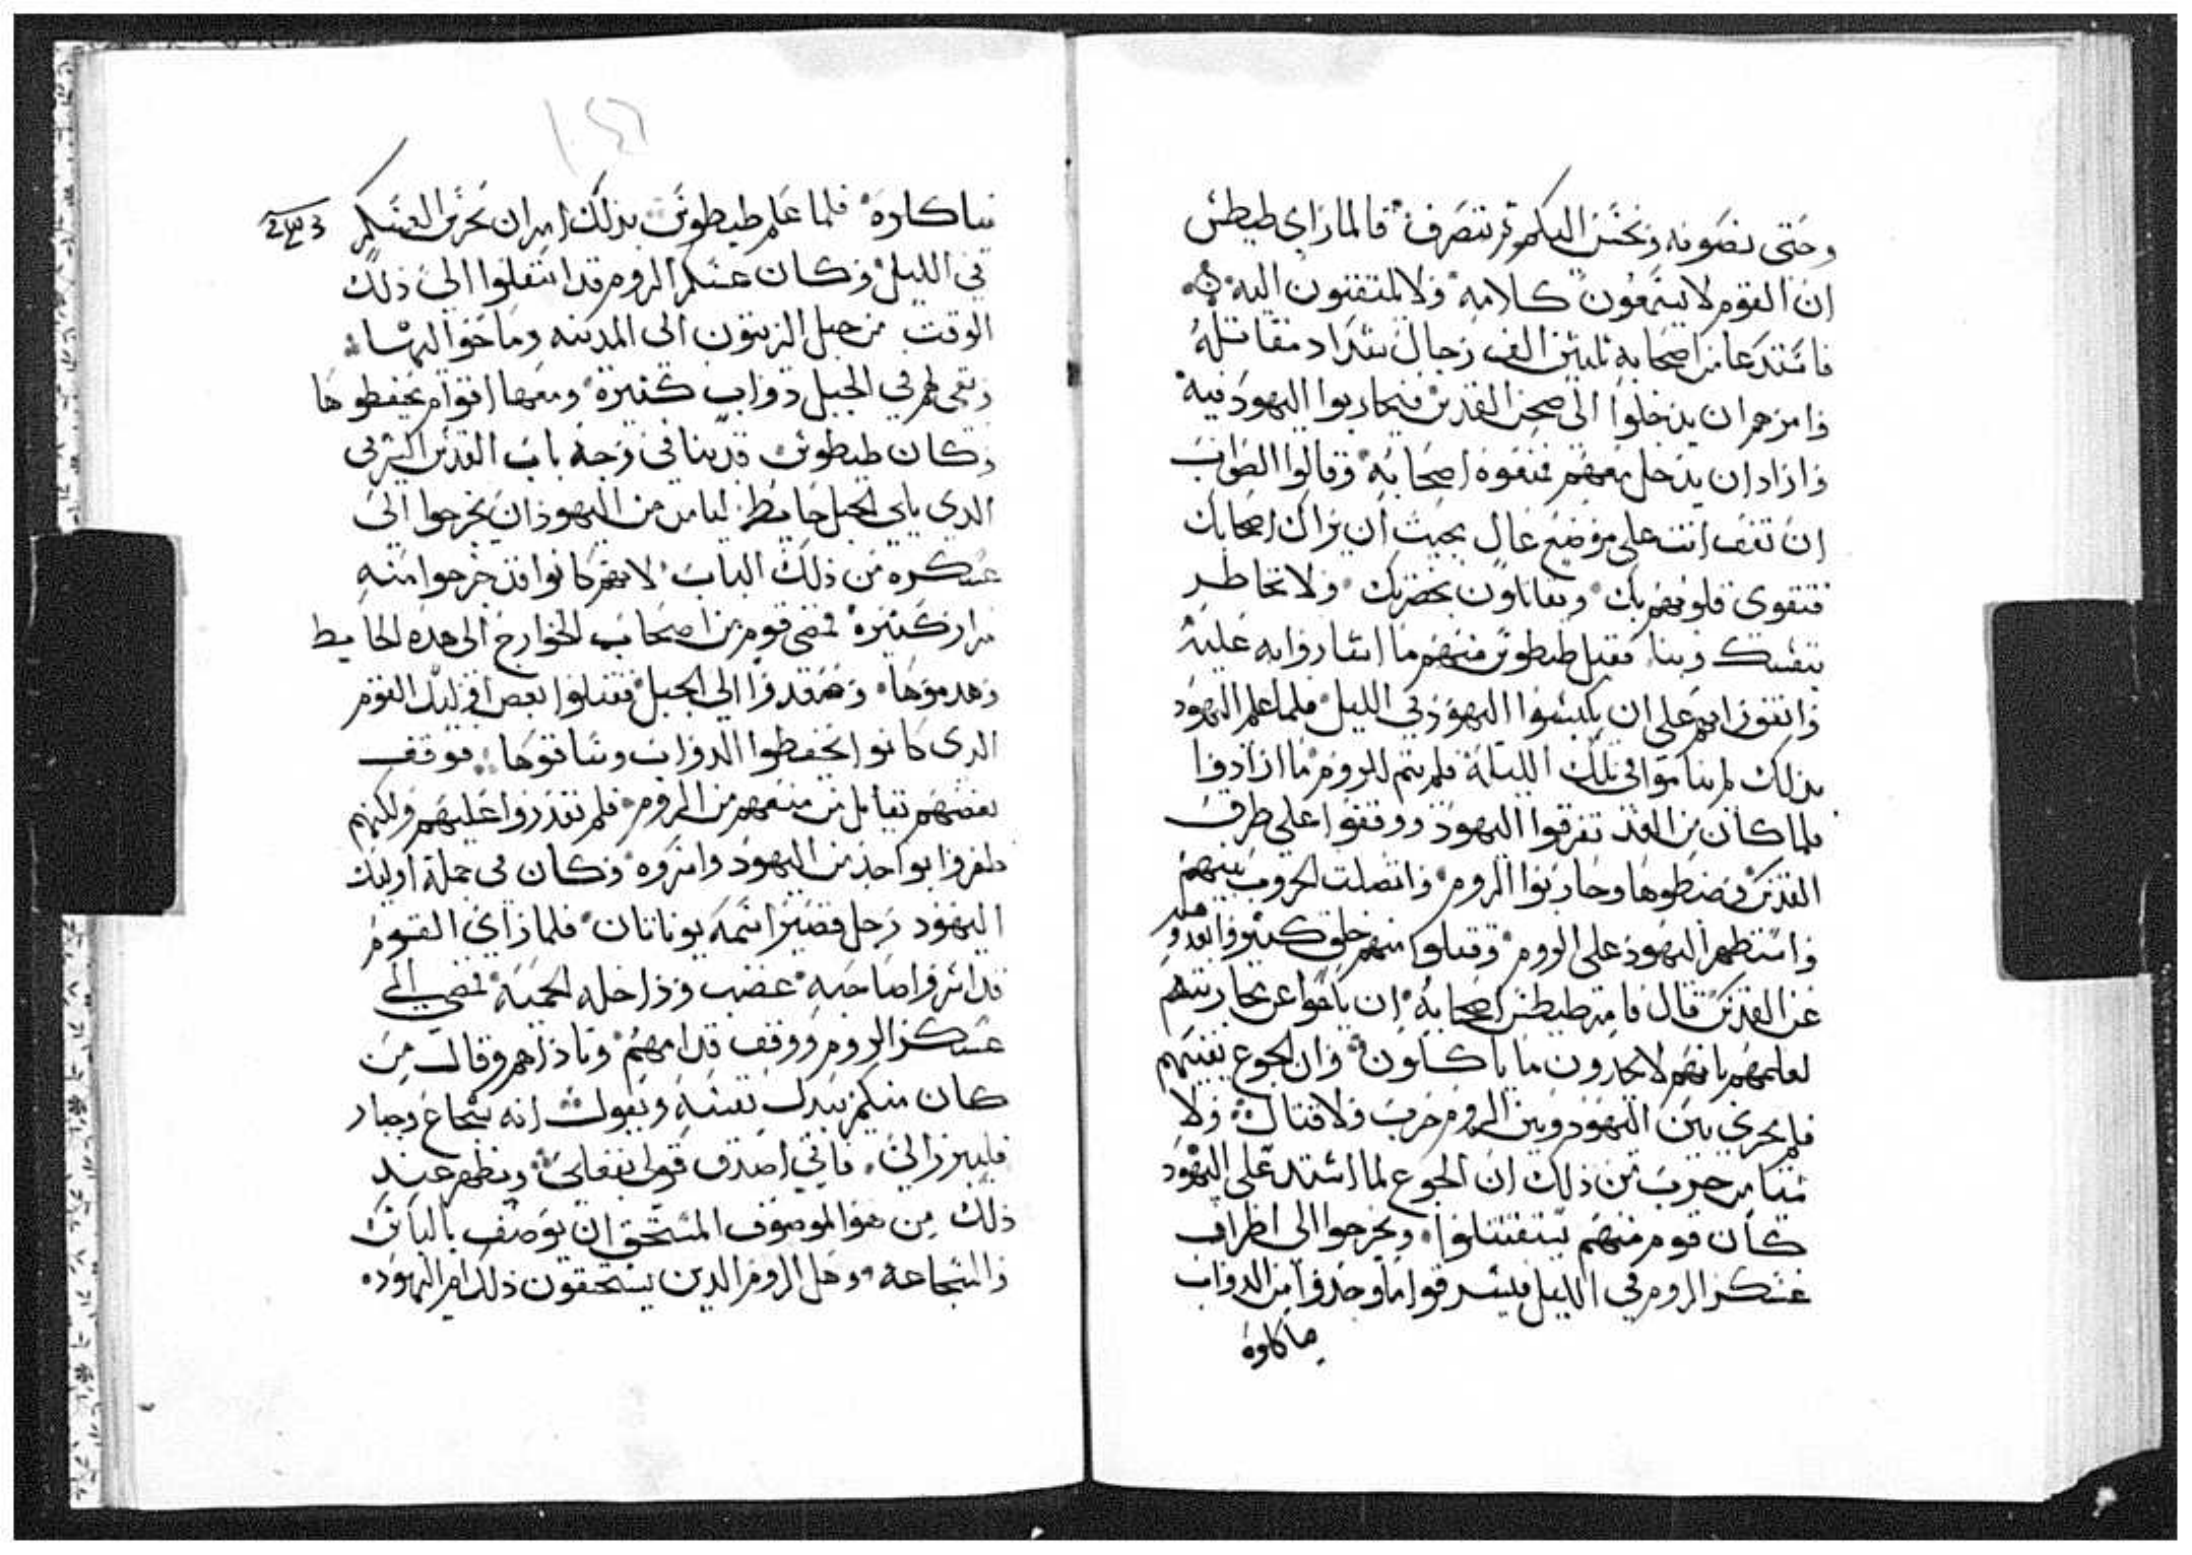 وحتى نصونه ونحسن اليكم ثم ننصرف قال لما راي طيطس
ان القوم لا يسمعون كلامه ولا يلتفتون اليه
فاستدعا من اصحابه تلتين الف رجال شداد مقاتله
وامرهم ان يدخلوا الى صحن القدس فيحاربوا اليهود فيه
واراد ان يدخل معهم فمنعوه اصحابه وقالوا الصواب
ان تقف انت على موضع عال بحيث ان يراك اصحابك
فتقوى قلوبهم بك ويقاتلون بحضرتك ولا تخاطر
بنفسك وبنا فقبل طيطوس منهم ما اشاروا به عليه
واتفق رايهم على ان يكبسوا اليهود في الليل فلما علم اليهود
بذلك لم يناموا في تلك الليلة فلم يتم للروم ما ارادوا
فلما كان من الغد تفرقوا اليهود ووقفوا على طرف
القدس وضبطوها وحاربوا الروم واتصلت الحروب بينهم
واستظهر اليهود على الروم وقتلوا منهم خلق كثير وابعدوهم
عن القدس قال فامر طيطس اصحابه ان عن محاربتهم
لعلمهم بانهم لا يجدون ما ياكلون وان الجوع يفنيهم
فلم يجري بين اليهود وبين الروم حرب ولا قتال ولا
من ذلك ان الجوع لما اشتد على اليهود
كان قوم منهم ويخرجوا الى اطراف
عسكر الروم في الليل فيسرقوا ما وجدوا من الدواب
فلما علم طيطوس بذلك امر ان يحرس العسكر
في الليل وكان عسكر الروم قد انتقلوا الى ذلك
الوقت من جبل الزيتون الى المدينه وما حواليها
وبقى لهم في الجبل دواب كتيرة ومعها اقوام يحفطوها
وكان طيطوس قد بنا في وجه باب القدس الشرقي
الدي يلي الجبل حايط ليامن من اليهود ان يخرجوا الى
عسكره من ذلك الباب لانهم كانوا قد خرجوا منه
مرار كتيرة فمضى قوم من اصحاب الخوارج الى هده الحايط
وهدموها الى الجبل فقتلوا بعض اوليك القوم
الدى كانوا يحفطوا الدواب وساقوها فوقف
بعضهم يقاتل من منعهم من الروم فلم يقدروا عليهم ولكنهم
ظفروا بواحد من اليهود واسروه وكان في جملة اوليك
اليهود رجل قصير اسمه يوناتان فلما راى القوم
قد اسروا صاحبه غضب وداخله الحميه فمضى الى
عسكر الروم ووقف قدامهم وناداهم وقال من
كان منكم يبدل نفسه ويقول انه شجاع وجبار
فليبرز الى فاني اصدق قولي بفعلي ويظهر عند
ذلك من هو الموصوف المستحق ان يوصف بالباس
والشجاعة وهل الروم الدين يستحقون ذلك ام اليهود